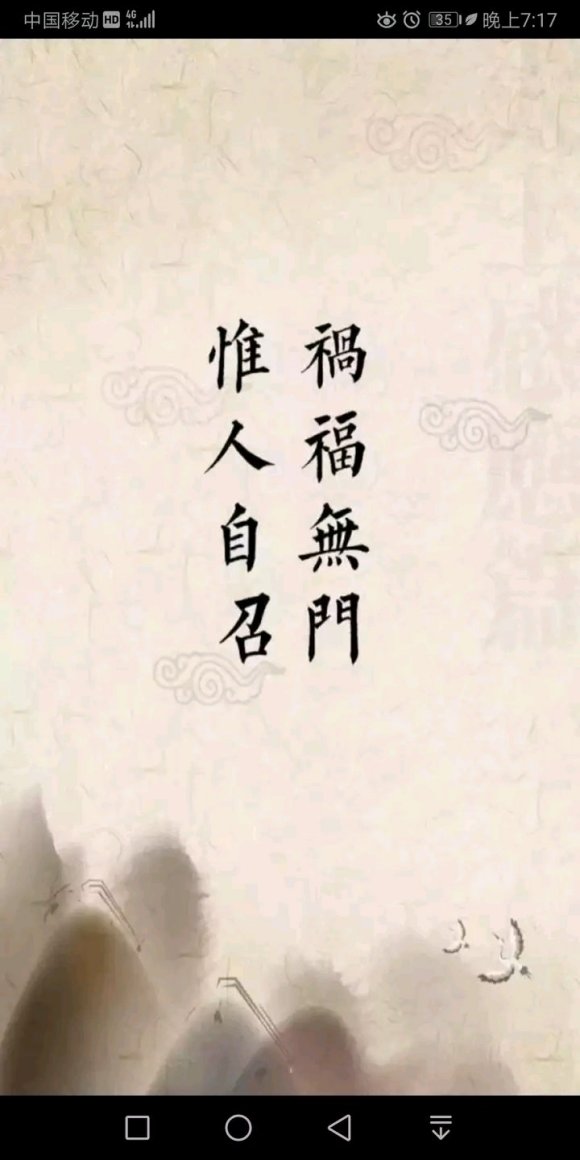 中国移动 HD 4G 35 晚上7:17
禍福無門
惟人自召
感應篇